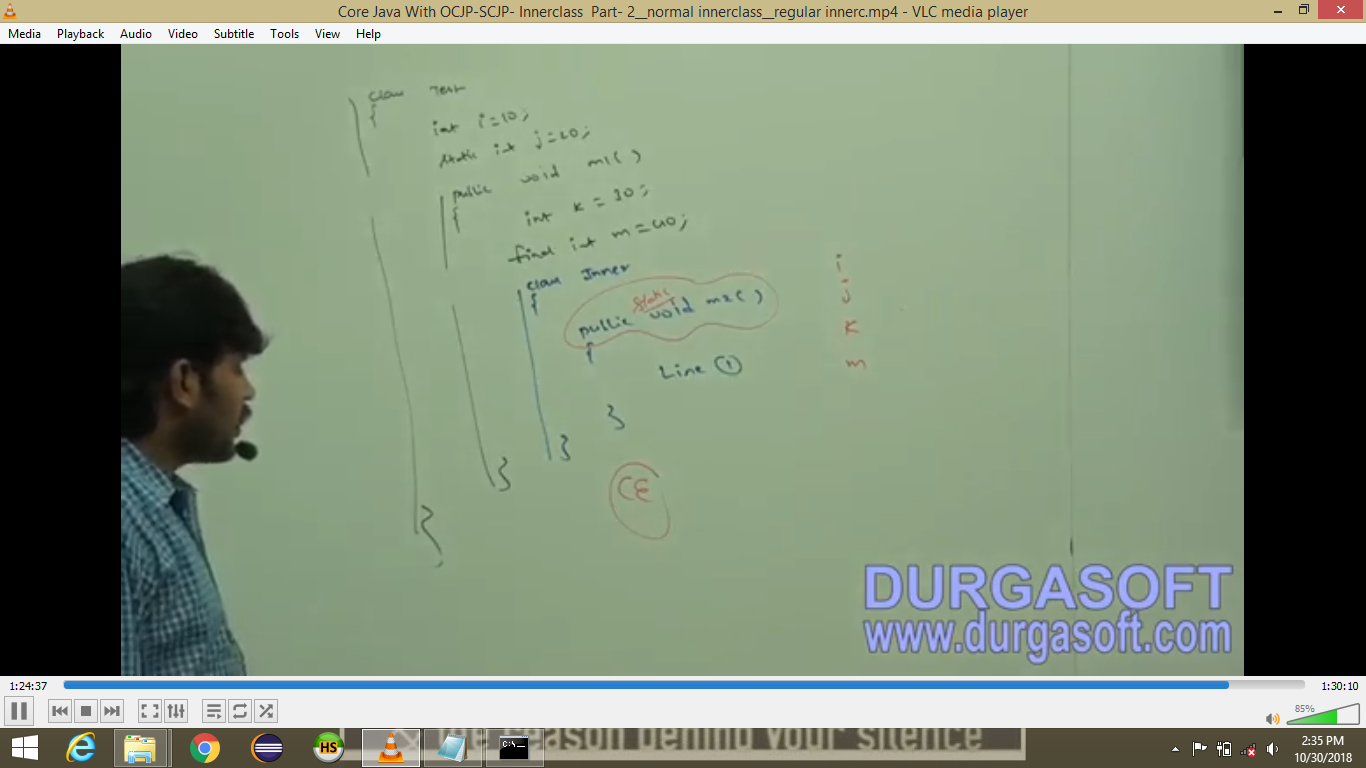 Core Java With OCJP-SCJP- Innerclass Part- 2__normal innerclass__regular innerc.mp4 - VLC media player
Media Playback Audio Video Subtitle Tools View Help
class Test
{
int i=10;
static int j=20;
public void m1( )
{
int k = 30;
final int m=40;
class Inner
{
static
public void m2( )
{
Line 1
}
}
}
}
i
j
k
m
CE
DURGASOFT
www.durgasoft.com
1:24:37
1:30:10
85%
HS
C:\
reason behind your silence
2:35 PM
10/30/2018